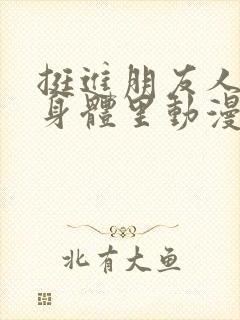 挺進朋友人
身體里動漫
北有大鱼